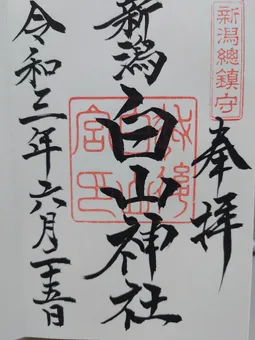 新潟總鎮守
奉拝
新潟
白山神社
令和三年六月二十五日